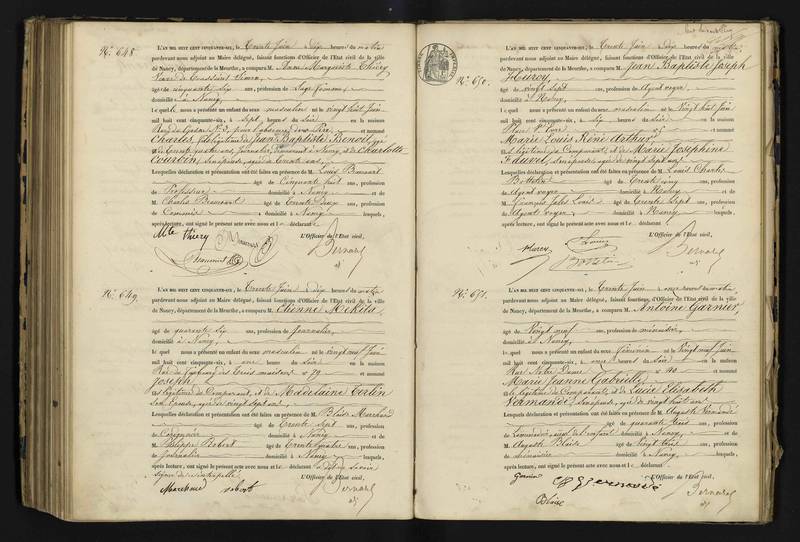 N° 648.
L'AN MIL HUIT CENT CINQUANTE-SIX, le trente Juin dix heures du matin
pardevant nous adjoint au Maire délégué, faisant fonctions d'Officier de l'Etat civil de la ville
de Nancy, département de la Meurthe, a comparu M. Anne Marguerite Thiéry
Veuve de
âgé de cinquante six ans, profession de Sage femme,
domicilié à Nancy,
lequel nous a présenté un enfant du sexe masculin né le vingt huit Juin
mil huit cent cinquante-six, à sept heures du soir en la maison
N° 3, pour l'absence du Père et nommé
Charles, fils légitime de Jean Baptiste Benoit,
âgé de trente quatre ans, à Nancy, et de Charlotte
Courbin, son épouse, âgée de trente ans,
Lesquelles déclaration et présentation ont été faites en présence de M. Louis
âgé de cinquante huit ans, profession
de Professeur domicilié à Nancy et de
M. Charles âgé de trente deux ans, profession
de Commis domicilié à Nancy lesquels,
après lecture, ont signé le présent acte avec nous et le déclarant
L'Officier de l'Etat civil,
Mte thiery
Bernard
adj
N° 649.
L'AN MIL HUIT CENT CINQUANTE-SIX, le trente Juin dix heures du matin
pardevant nous adjoint au Maire délégué, faisant fonctions d'Officier de l'Etat civil de la ville
de Nancy, département de la Meurthe, a comparu M. Etienne
âgé de quarante six ans, profession de Journalier,
domicilié à Nancy,
lequel nous a présenté un enfant du sexe masculin né le vingt neuf Juin
mil huit cent cinquante-six, à onze heures du soir en la maison
Rue du faubourg des trois maisons n° 79 et nommé
Joseph,
fils légitime du Comparant, et de Madelaine Tortin
son Epouse, âgée de vingt sept ans
Lesquelles déclaration et présentation ont été faites en présence de M. Blaise Marchand
âgé de trente sept ans, profession
de Cordonnier domicilié à Nancy et de
M. Philippe Robert âgé de trente quatre ans, profession
de Journalier domicilié à Nancy lesquels,
après lecture, ont signé le présent acte avec nous et le déclarant a déclaré ne savoir
signer de ce interpellé
L'Officier de l'Etat civil,
Marchand robert
Bernard
adj
N° 650.
L'AN MIL HUIT CENT CINQUANTE-SIX, le trente Juin dix heures du matin
pardevant nous adjoint au Maire délégué, faisant fonctions d'Officier de l'Etat civil de la ville
de Nancy, département de la Meurthe, a comparu M. Jean Baptiste Joseph
âgé de vingt sept ans, profession de Agent voyer,
domicilié à Nancy,
lequel nous a présenté un enfant du sexe masculin né le vingt huit Juin
mil huit cent cinquante-six, à six heures du soir en la maison
Place St. Evre n° 5 et nommé
Marie Louis Réné Arthur,
fils légitime du Comparant, et de Marie Joséphine
Fauvel, son épouse, âgée de vingt sept ans
Lesquelles déclaration et présentation ont été faites en présence de M. Louis Charles
Bottelin âgé de trente cinq ans, profession
de Agent voyer domicilié à Nancy et de
M. François Jules Louis âgé de trente sept ans, profession
de Agent voyer, domicilié à Nancy lesquels,
après lecture, ont signé le présent acte avec nous et le déclarant
L'Officier de l'Etat civil,
Louis
Bottelin
Bernard
adj
N° 651.
L'AN MIL HUIT CENT CINQUANTE-SIX, le trente Juin onze heures du matin
pardevant nous adjoint au Maire délégué, faisant fonctions d'Officier de l'Etat civil de la ville
de Nancy, département de la Meurthe, a comparu M. Antoine Garnier,
âgé de Vingt neuf ans, profession de menuisier,
domicilié à Nancy,
lequel nous a présenté un enfant du sexe féminin né le Vingt neuf Juin
mil huit cent cinquante-six, à onze heures du soir en la maison
Rue Notre Dame n° 40 et nommé
Marie Jeanne Gabrielle,
fille légitime du Comparant, et de Lucie Elisabeth
Vermandé, son épouse, âgée de vingt huit ans
Lesquelles déclaration et présentation ont été faites en présence de M. Auguste Vermandé
âgé de quarante trois ans, profession
de aïeul de l'enfant domicilié à Nancy, et de
M. Auguste Blaise âgé de vingt trois ans, profession
de menuisier domicilié à Nancy lesquels,
après lecture, ont signé le présent acte avec nous et le déclarant
L'Officier de l'Etat civil,
Garnier
Blaise
Bernard
adj